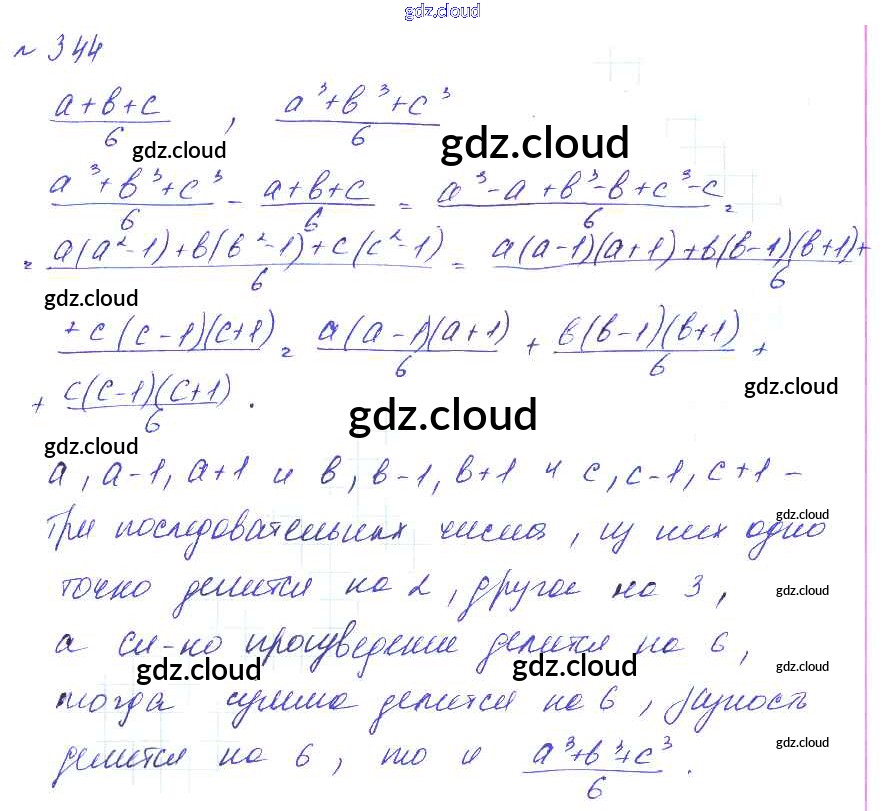 gdz.cloud
№ 344
(a+b+c)/6 , (a³+b³+c³)/6
gdz.cloud gdz.cloud
(a³+b³+c³)/6 - (a+b+c)/6 = (a³-a+b³-b+c³-c)/6 =
= (a(a²-1)+b(b²-1)+c(c²-1))/6 = (a(a-1)(a+1)+b(b-1)(b+1)+)/6
gdz.cloud
+c(c-1)(c+1) = a(a-1)(a+1)/6 + b(b-1)(b+1)/6 +
gdz.cloud
+ c(c-1)(c+1)/6 .
gdz.cloud
gdz.cloud
a, a-1, a+1 и b, b-1, b+1 и c, c-1, c+1 -
gdz.cloud
Три последовательных числа, из них одно
точно делится на 2, другое на 3,
gdz.cloud
а сл-но произведение делится на 6,
gdz.cloud gdz.cloud gdz.cloud
тогда сумма делится на 6, разность
делится на 6, то и (a³+b³+c³)/6 .
gdz.cloud